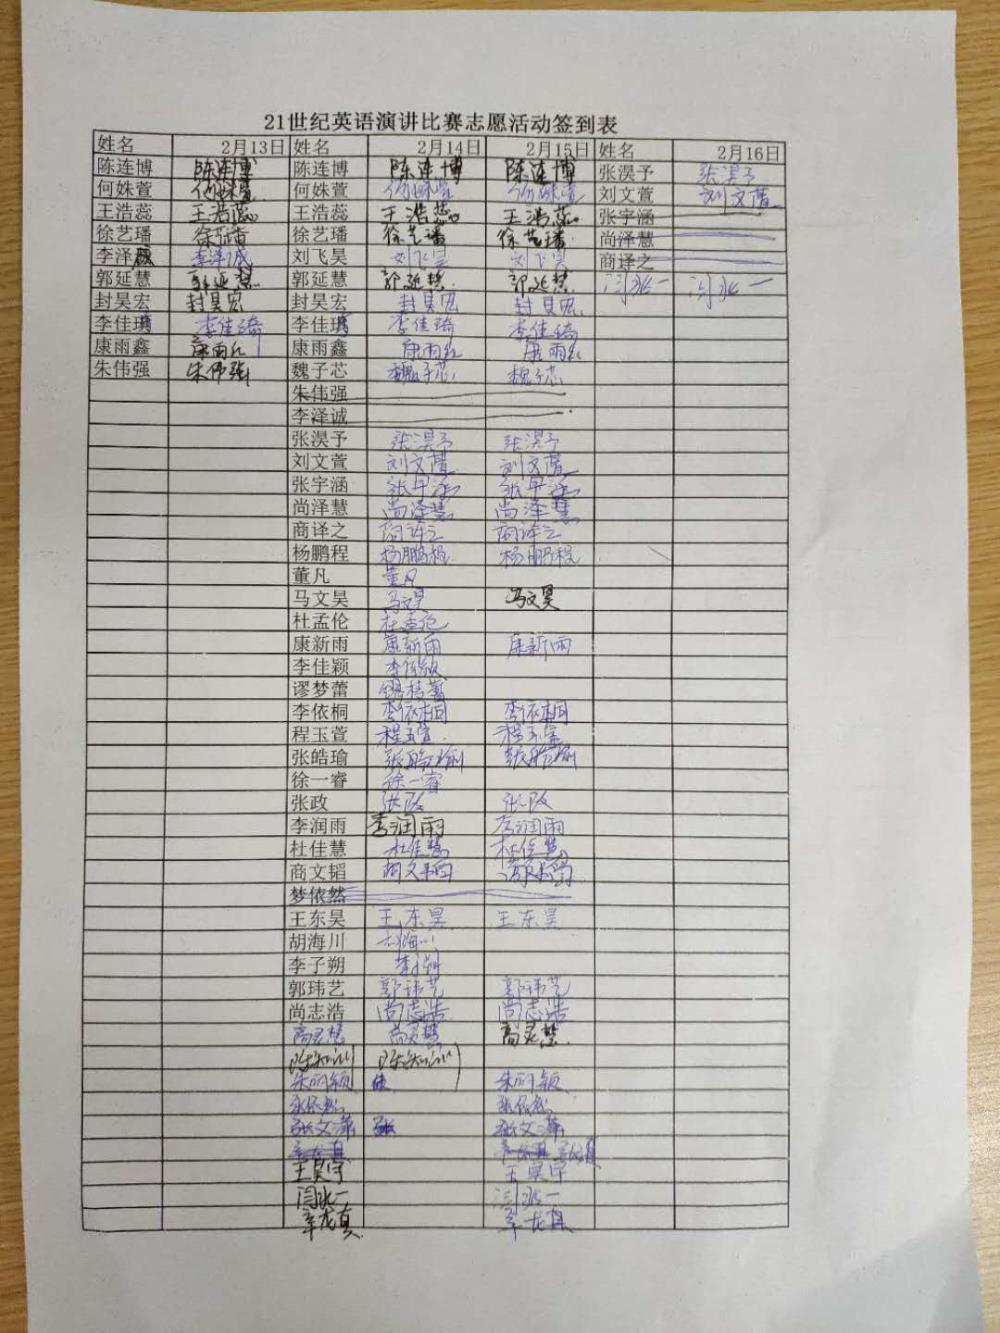 21世纪英语演讲比赛志愿活动签到表
姓名 2月13日 姓名 2月14日 2月15日 姓名 2月16日
陈连博 陈连博 陈连博 陈连博 陈连博 张淏予 张淏予
何姝萱 何姝萱 何姝萱 何姝萱 何姝萱 刘文萱 刘文萱
王浩蕊 王浩蕊 王浩蕊 王浩蕊 王浩蕊 张宇涵
徐艺璠 徐艺璠 徐艺璠 徐艺璠 尚泽慧
李泽诚 李泽诚 刘飞昊 刘飞昊 刘飞昊 商译之
郭延慧 郭延慧 郭延慧 郭延慧 郭延慧 闫冰一 闫冰一
封昊宏 封昊宏 封昊宏 封昊宏 封昊宏
李佳琦 李佳琦 李佳琦 李佳琦 李佳琦
康雨鑫 康雨鑫 康雨鑫 康雨鑫 康雨鑫
朱伟强 朱伟强 魏子芯 魏子芯 魏子芯
朱伟强
李泽诚
张淏予 张淏予 张淏予
刘文萱 刘文萱 刘文萱
张宇涵 张宇涵 张宇涵
尚泽慧 尚泽慧 尚泽慧
商译之 商译之 商译之
杨鹏程 杨鹏程 杨鹏程
董凡 董凡
马文昊 马文昊 马文昊
杜孟伦 杜孟伦
康新雨 康新雨 康新雨
李佳颖
谬梦蕾
李依桐 李依桐 李依桐
程玉萱 程玉萱 程玉萱
张皓瑜 张皓瑜 张皓瑜
徐一睿 徐一睿
张政 张政 张政
李润雨 李润雨 李润雨
杜佳慧 杜佳慧 杜佳慧
商文韬 商文韬
梦依然
王东昊 王东昊 王东昊
胡海川 胡海川
李子朔 李子朔
郭玮艺 郭玮艺 郭玮艺
尚志浩 尚志浩 尚志浩
高灵慧 高灵慧 高灵慧
朱雨颖 朱雨颖
张依然 张依然
张文潇 张 张文潇
辛龙真 辛龙真
王昊宇 王昊宇
闫冰一 闫冰一
辛龙真 辛龙真